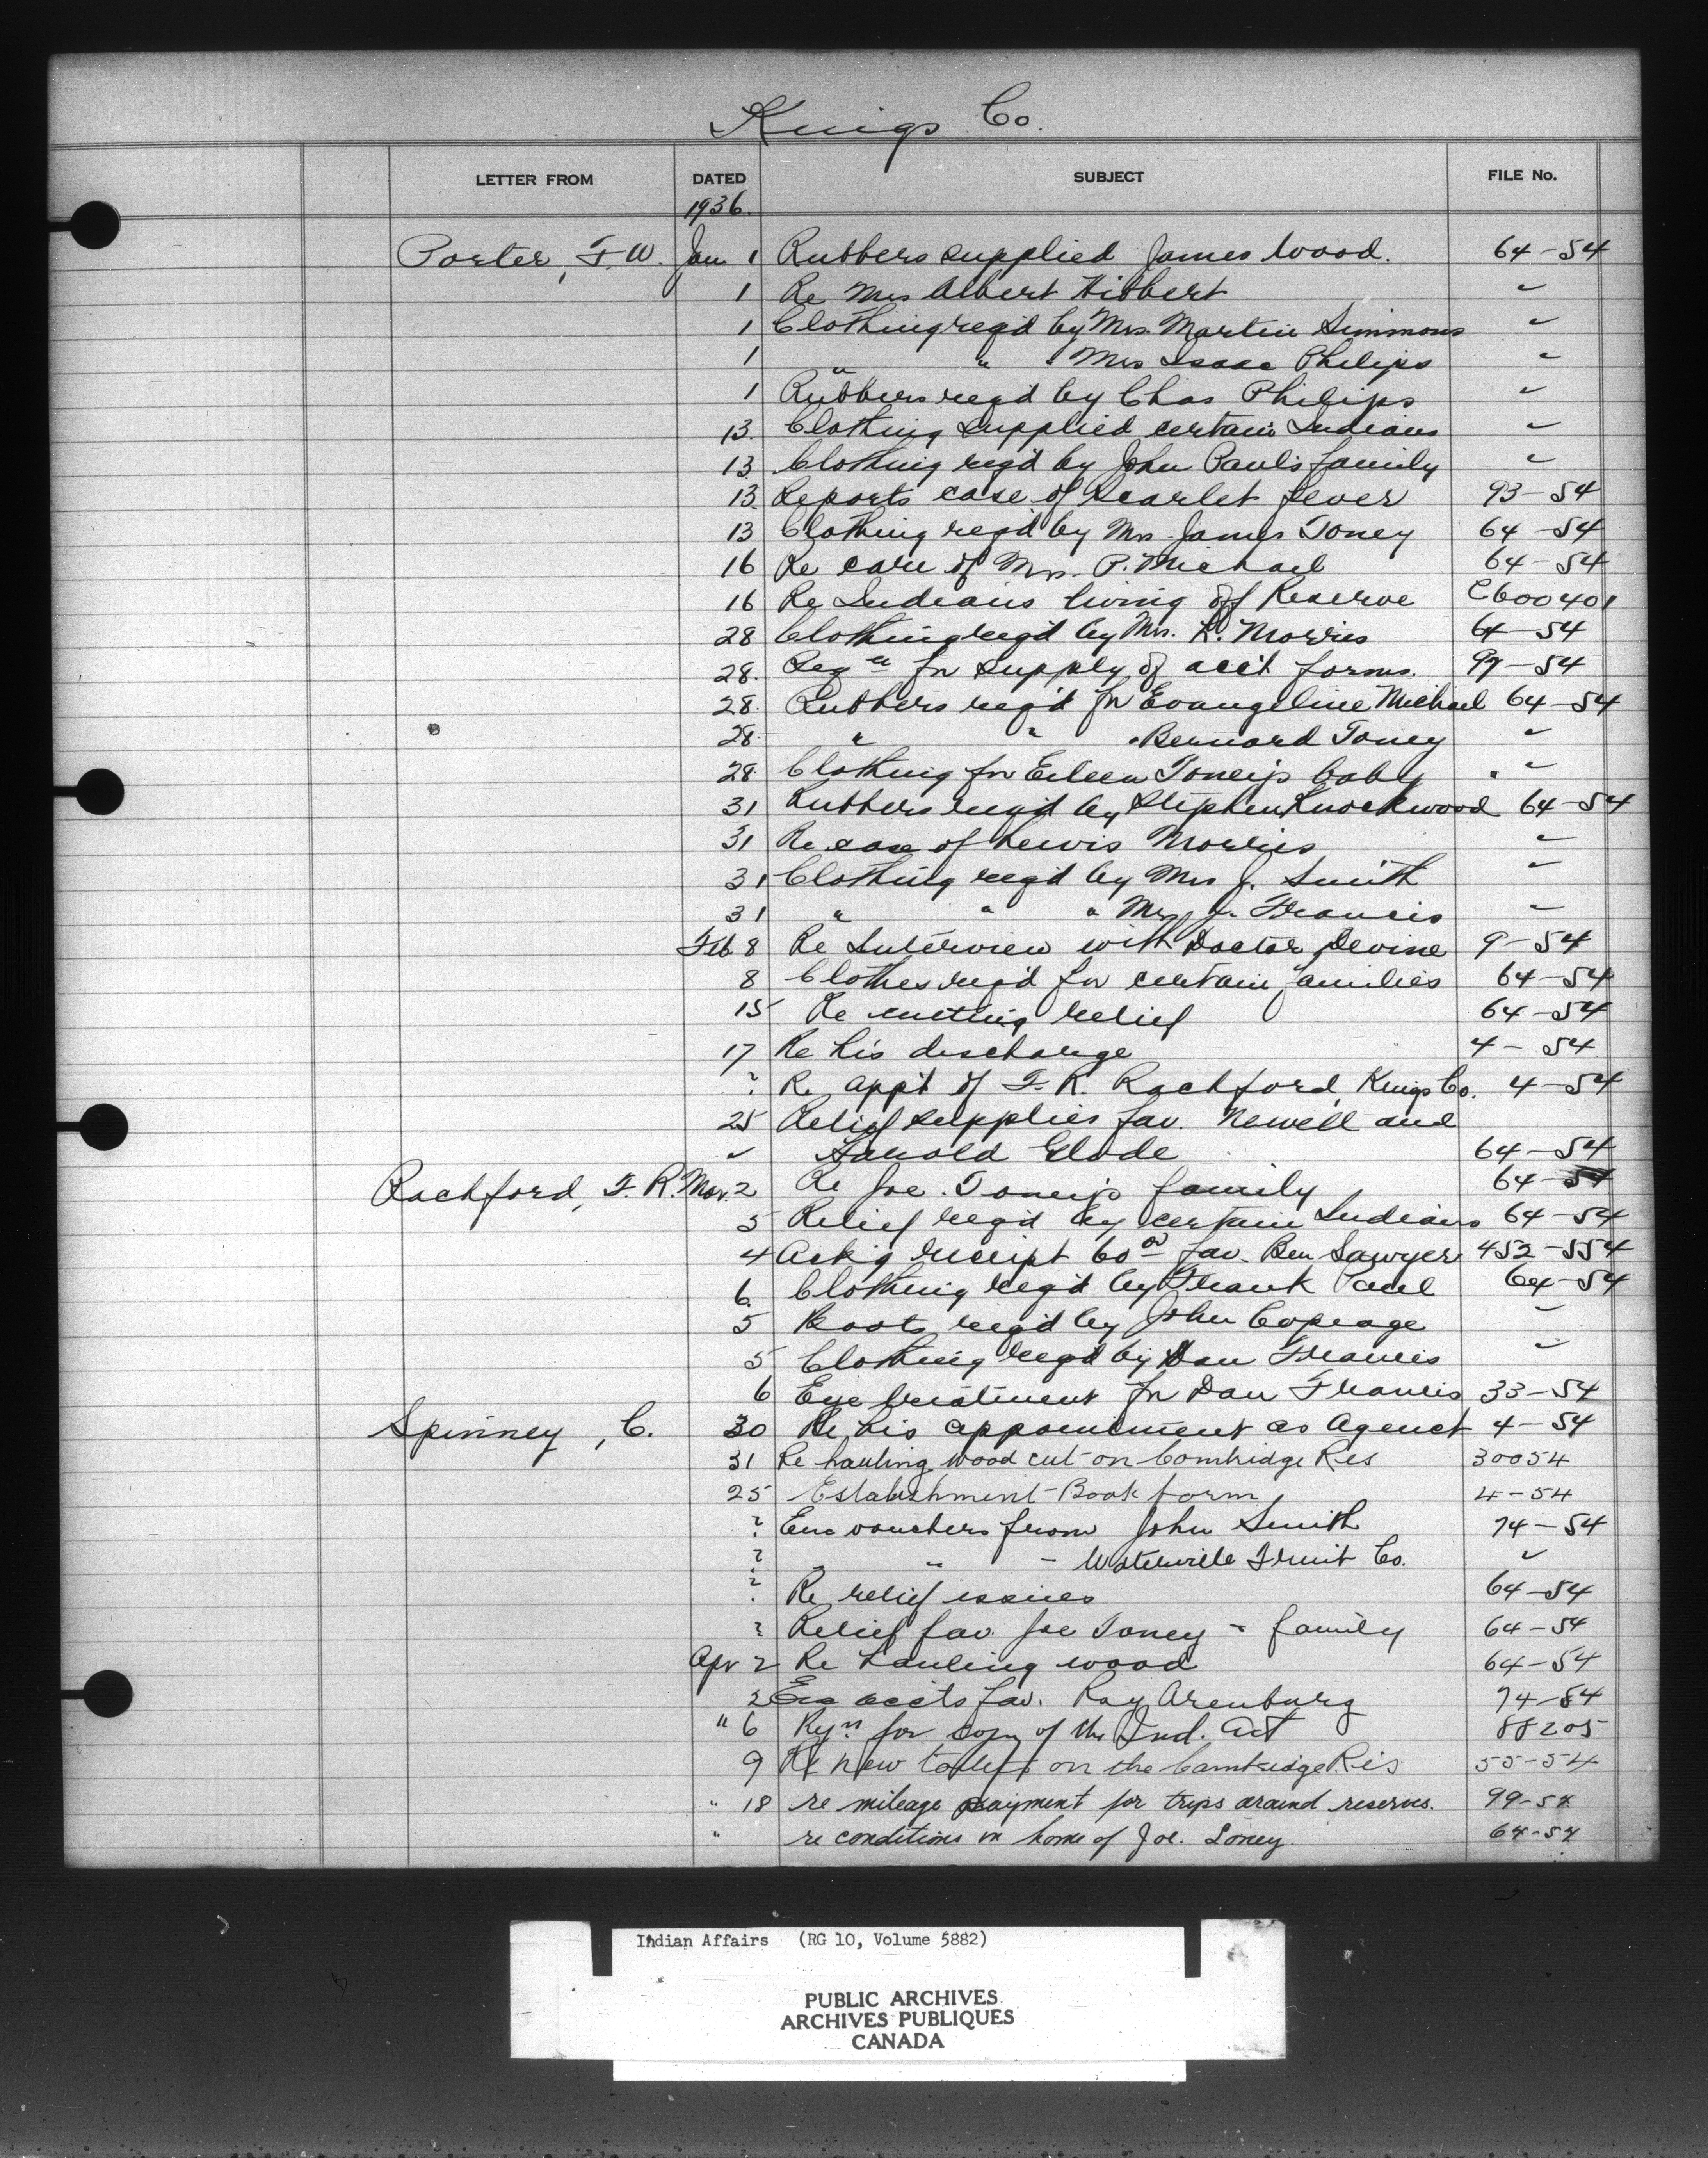 Kings Co.
LETTER FROM DATED SUBJECT FILE No.
1936.
Porter, F. W. Jan 1 Rubbers supplied James Wood. 64-54
1 Re Mrs Albert Hibbert "
1 Clothing reqd by Mrs. Martin Simmons "
1 " " " Mrs Isaac Philips "
1 Rubbers reqd by Chas Philips "
13. Clothing supplied certain Indians "
13 Clothing reqd by John Paul's family "
13. Reports case of Scarlet fever 93-54
13 Clothing reqd by Mrs. James Toney 64-54
16 Re care of Mrs. P. Michael 64-54
16 Re Indians living off Reserve C600401
28 Clothing reqd by Mrs. L. Morris 64-54
28. Reqn for supply of acct forms. 99-54
28. Rubbers reqd for Evangeline Michael 64-54
28. " " " Bernard Toney "
28. Clothing for Eileen Toney's baby "
31 Rubbers reqd by Stephen Knockwood 64-54
31 Re case of Lewis Morris "
31 Clothing reqd by Mrs J. Smith "
31 " " " Mrs J. Francis "
Feb 8 Re Interview with Doctor Devine 9-54
8 Clothes reqd for certain families 64-54
15 Re cutting relief 64-54
17 Re his discharge 4-54
? Re appt of F. R. Rachford, Kings Co. 4-54
25 Relief supplies fav. Newell and
" Harold Glode 64-54
Rachford, F. R. Mar. 2 Re Joe. Toney's family 64-54
5 Relief reqd by certain Indians 64-54
4 Ack'g receipt 60 00 fav. Ben Sawyer 452-554
6. Clothing reqd by Frank Paul 64-54
5 Boots reqd by John Copeage "
5 Clothing reqd by Dan Francis "
6 Eye treatment for Dan Francis 33-54
Spinney, C. 30 Re his appointment as Agent 4-54
31 Re hauling wood cut on Cambridge Res 30054
25 Establishment-Book form 4-54
? Enc vouchers from John Smith 74-54
? " " - Waterville Fruit Co. "
? Re relief issues 64-54
? Relief fav. Joe Toney & family 64-54
Apr 2 Re hauling wood 64-54
2 Enc accts fav. Ray Arenburg 74-54
" 6 Rqn for copy of the Ind. Act 88205
9 Re new toilets on the Cambridge Res 55-54
" 18 re mileage payment for trips around reserves. 99-54
" re conditions in home of Joe. Toney 64-54
Indian Affairs (RG 10, Volume 5882)
PUBLIC ARCHIVES
ARCHIVES PUBLIQUES
CANADA